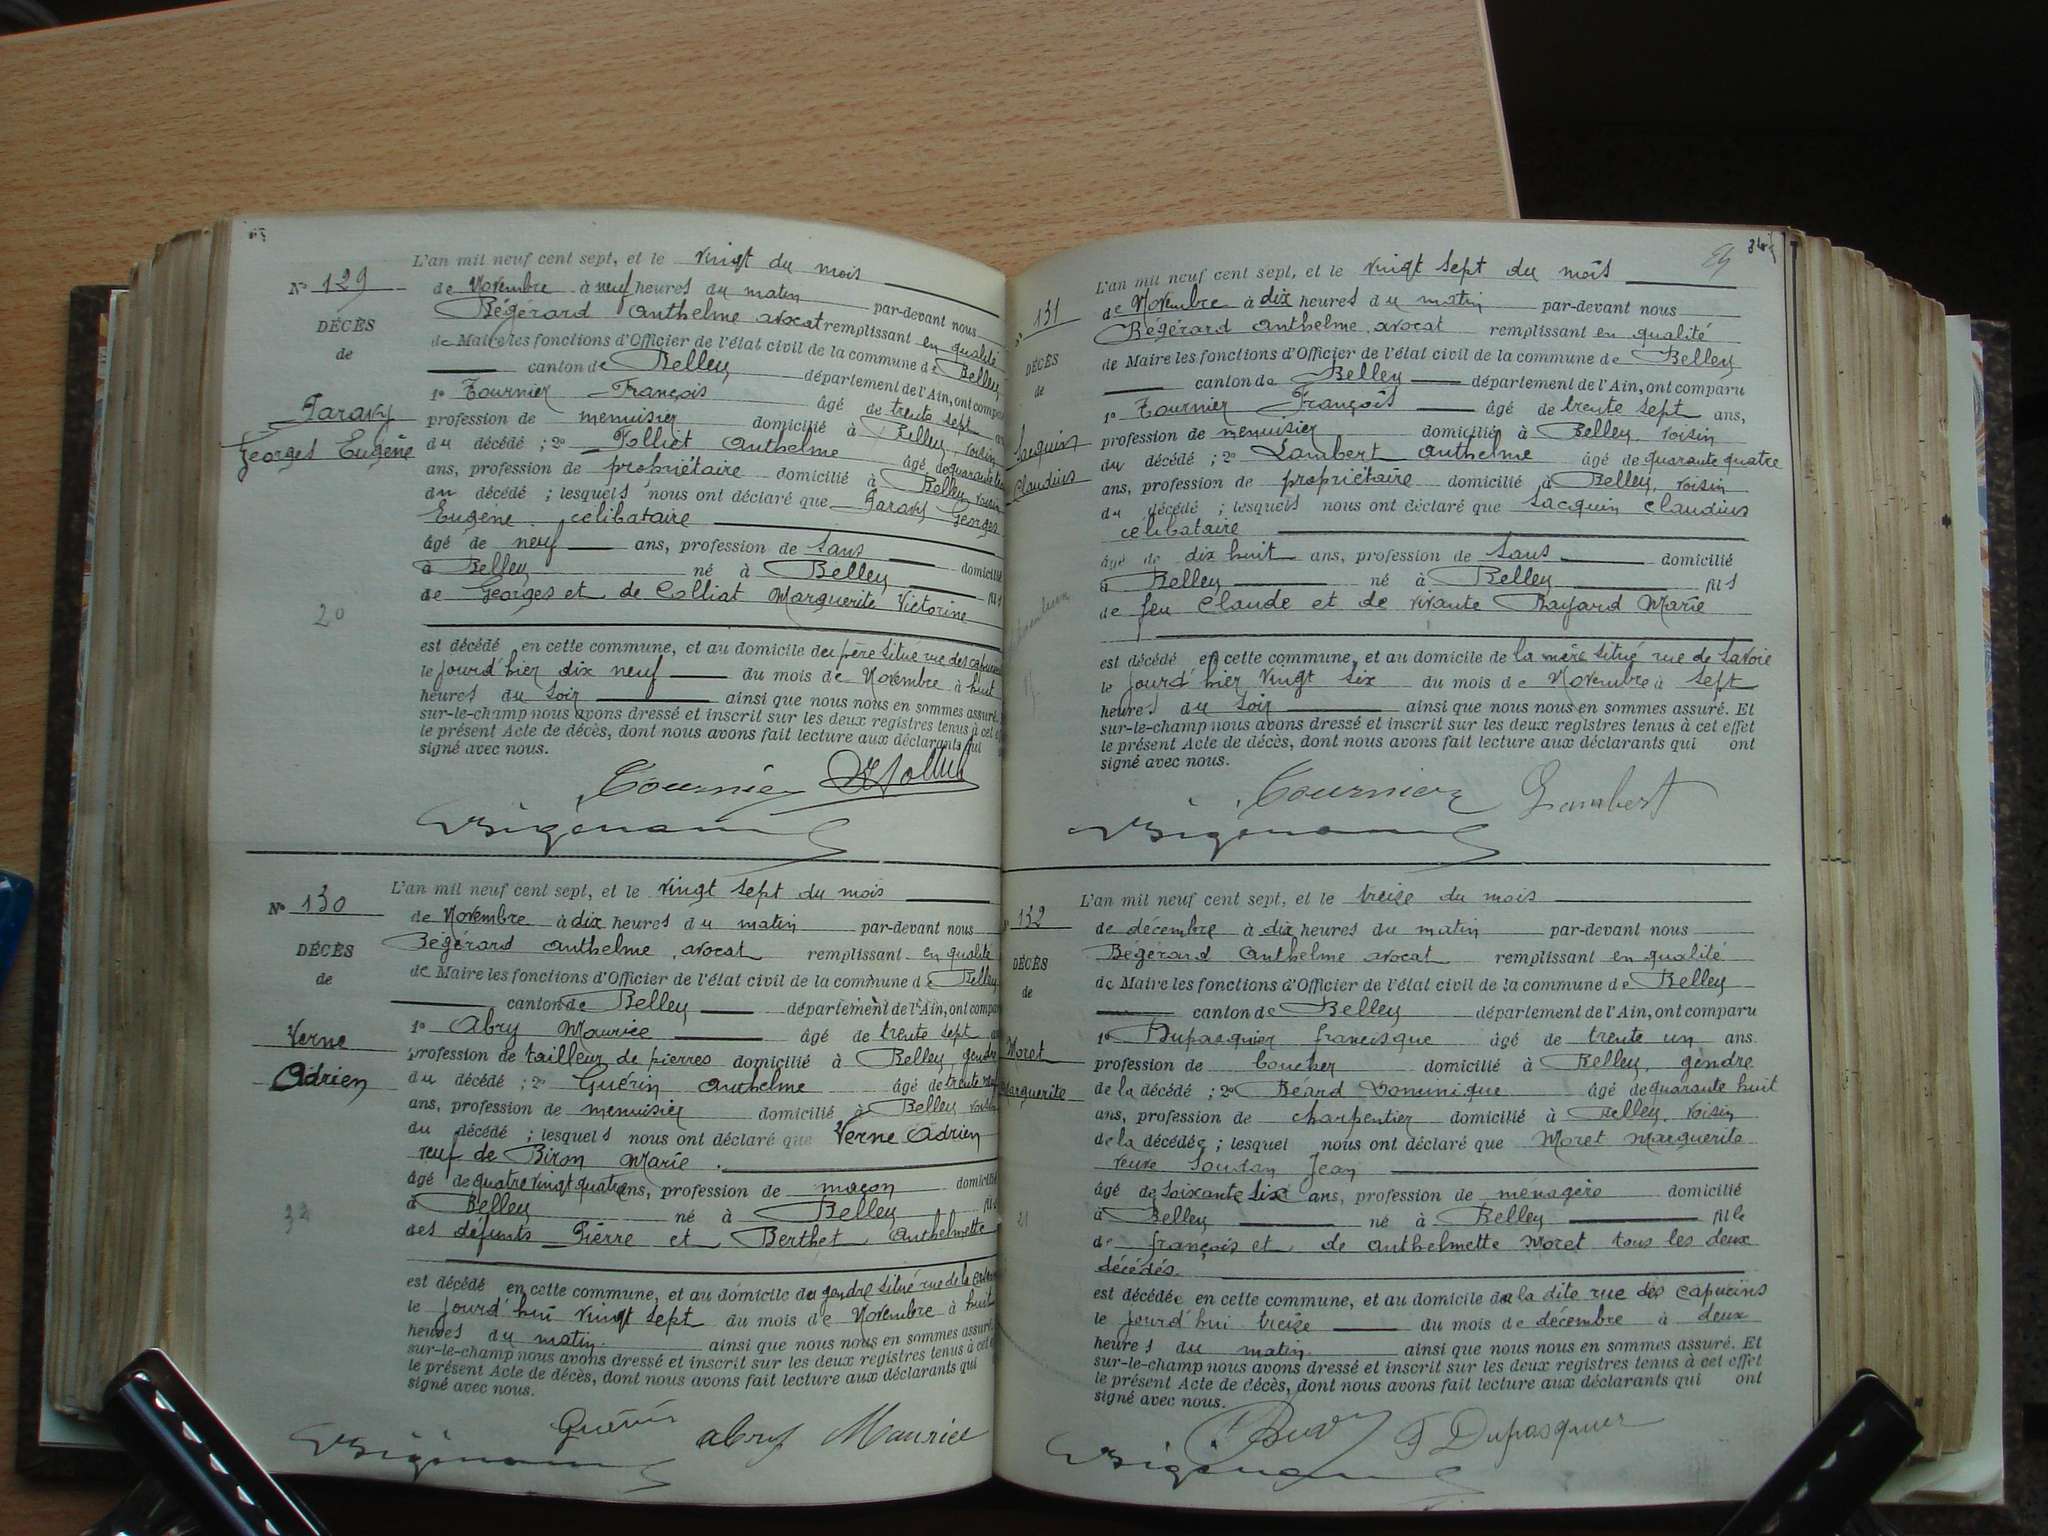 L'an mil neuf cent sept, et le vingt du mois
N° 129
de Novembre à neuf heures du matin par-devant nous
Bégérard Anthelme avocat remplissant en qualité
DÉCÈS
de Maire les fonctions d'Officier de l'état civil de la commune de Belley
de
canton de Belley département de l'Ain, ont comparu
1° Tournier François âgé de trente sept
Georges Eugène
profession de menuisier domicilié à Belley, voisin
du décédé ; 2° Anthelme âgé de quarante
ans, profession de propriétaire domicilié à Belley, voisin
du décédé ; lesquels nous ont déclaré que Georges
Eugène célibataire
âgé de neuf ans, profession de Sans domicilié
à Belley né à Belley fils
de Georges et de Colliat Marguerite Victorine
20
est décédé en cette commune, et au domicile du père situé rue des
le jourd'hier dix neuf du mois de Novembre à huit
heures du soir ainsi que nous nous en sommes assuré.
sur-le-champ nous avons dressé et inscrit sur les deux registres tenus à cet
le présent Acte de décès, dont nous avons fait lecture aux déclarants qui
signé avec nous.
Tournier
L'an mil neuf cent sept, et le vingt sept du mois
N° 130
de Novembre à dix heures du matin par-devant nous
Bégérard Anthelme, avocat remplissant en qualité
DÉCÈS
de Maire les fonctions d'Officier de l'état civil de la commune de Belley
de
canton de Belley département de l'Ain, ont comparu
1° Abry Maurice âgé de trente sept
Verne
profession de tailleur de pierres domicilié à Belley gendre
Adrien
du décédé ; 2° Guérin Anthelme âgé de trente
ans, profession de menuisier domicilié à Belley voisin
du décédé ; lesquels nous ont déclaré que Verne Adrien
veuf de Biron Marie
âgé de quatre vingt quatre ans, profession de maçon domicilié
à Belley né à Belley fils
des défunts Pierre et Berthet Anthelmette
est décédé en cette commune, et au domicile du gendre situé rue de la
le jourd'hui vingt sept du mois de Novembre à huit
heures du matin. ainsi que nous nous en sommes assuré.
sur-le-champ nous avons dressé et inscrit sur les deux registres tenus à cet
le présent Acte de décès, dont nous avons fait lecture aux déclarants qui
signé avec nous.
Guérin Abry Maurice
L'an mil neuf cent sept, et le vingt sept du mois
131
de Novembre à dix heures du matin par-devant nous
Bégérard Anthelme, avocat remplissant en qualité
DÉCÈS
de Maire les fonctions d'Officier de l'état civil de la commune de Belley
de
canton de Belley département de l'Ain, ont comparu
1° Tournier François âgé de trente sept ans,
Jacquin
profession de menuisier domicilié à Belley, voisin
Claudius
du décédé ; 2° Lambert Anthelme âgé de quarante quatre
ans, profession de propriétaire domicilié à Belley, voisin
du décédé ; lesquels nous ont déclaré que Jacquin Claudius
célibataire
âgé de dix huit ans, profession de Sans domicilié
à Belley né à Belley fils
de feu Claude et de vivante Bayard Marie
est décédé en cette commune, et au domicile de la mère situé rue de Savoie
le jourd'hier vingt six du mois de Novembre à sept
heures du soir ainsi que nous nous en sommes assuré. Et
sur-le-champ nous avons dressé et inscrit sur les deux registres tenus à cet effet
le présent Acte de décès, dont nous avons fait lecture aux déclarants qui ont
signé avec nous.
Tournier Lambert
L'an mil neuf cent sept, et le treize du mois
132
de décembre à dix heures du matin par-devant nous
Bégérard Anthelme avocat remplissant en qualité
DÉCÈS
de Maire les fonctions d'Officier de l'état civil de la commune de Belley
de
canton de Belley département de l'Ain, ont comparu
1° Dupasquier francisque âgé de trente un ans.
Moret
profession de boucher domicilié à Belley, gendre
Marguerite
de la décédé ; 2° Béard Dominique âgé de quarante huit
ans, profession de charpentier domicilié à Belley, voisin
de la décédée ; lesquel nous ont déclaré que Moret Marguerite
veuve Jean
âgé de soixante six ans, profession de ménagère domicilié
à Belley né à Belley fille
21
de françois et de Anthelmette Moret tous les deux
décédés.
est décédée en cette commune, et au domicile de la dite rue des capucins
le jourd'hui treize du mois de décembre à deux
heures du matin. ainsi que nous nous en sommes assuré. Et
sur-le-champ nous avons dressé et inscrit sur les deux registres tenus à cet effet
le présent Acte de décès, dont nous avons fait lecture aux déclarants qui ont
signé avec nous.
F Dupasquier